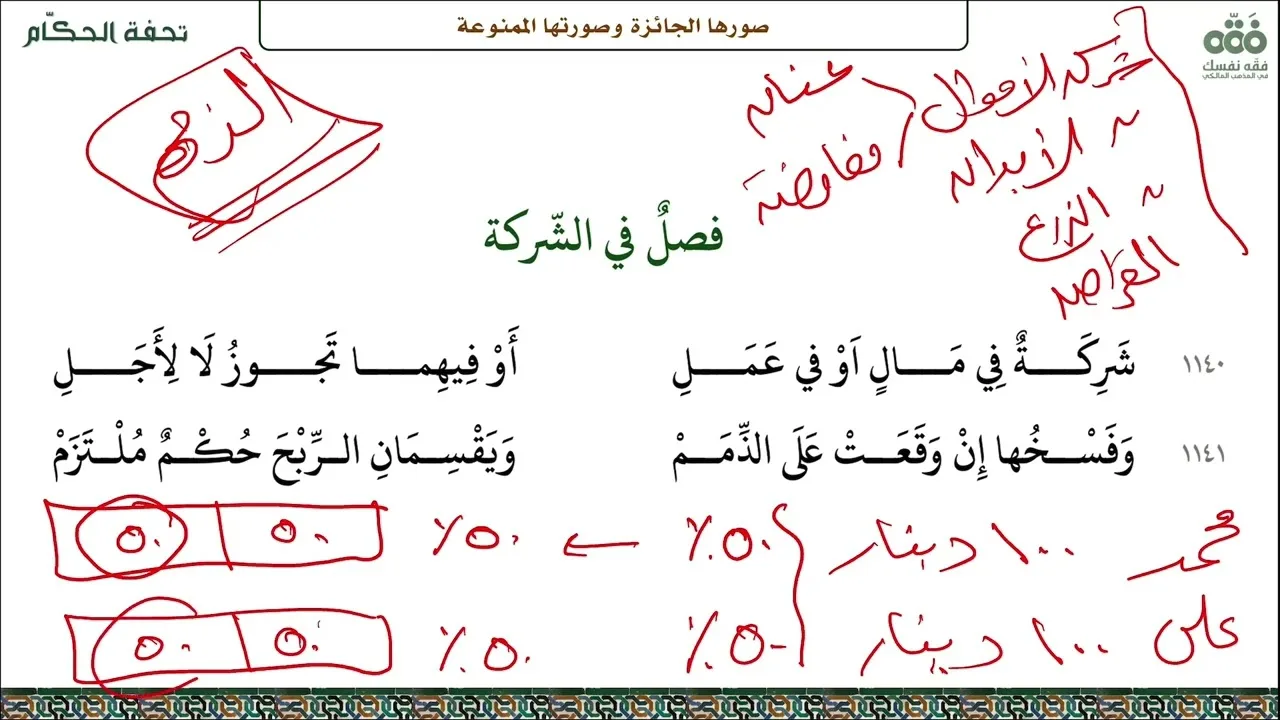 تحفة الحكّام
صورها الجائزة وصورتها الممنوعة
فقّه نفسك
في المذهب المالكي
شركة الأموال
عنان
مفاوضة
~ الأبدان
~ الزرع
القراض
الذمم
فصلٌ في الشّركة
١١٤٠ شَرِكَةٌ فِي مَالٍ اَوْ في عَمَلِ أَوْ فِيهِما تَجُوزُ لَا لِأَجَلِ
١١٤١ وَفَسْخُها إِنْ وَقَعَتْ عَلَى الذِّمَمْ وَيَقْسِمَانِ الرِّبْحَ حُكْمٌ مُلْتَزَمْ
محمد ١٠٠ دينار ٥٠٪ ← ٥٠٪ ٥٠ ٥٠
علي ١٠٠ دينار ٥٠٪ ٥٠٪ ٥٠ ٥٠